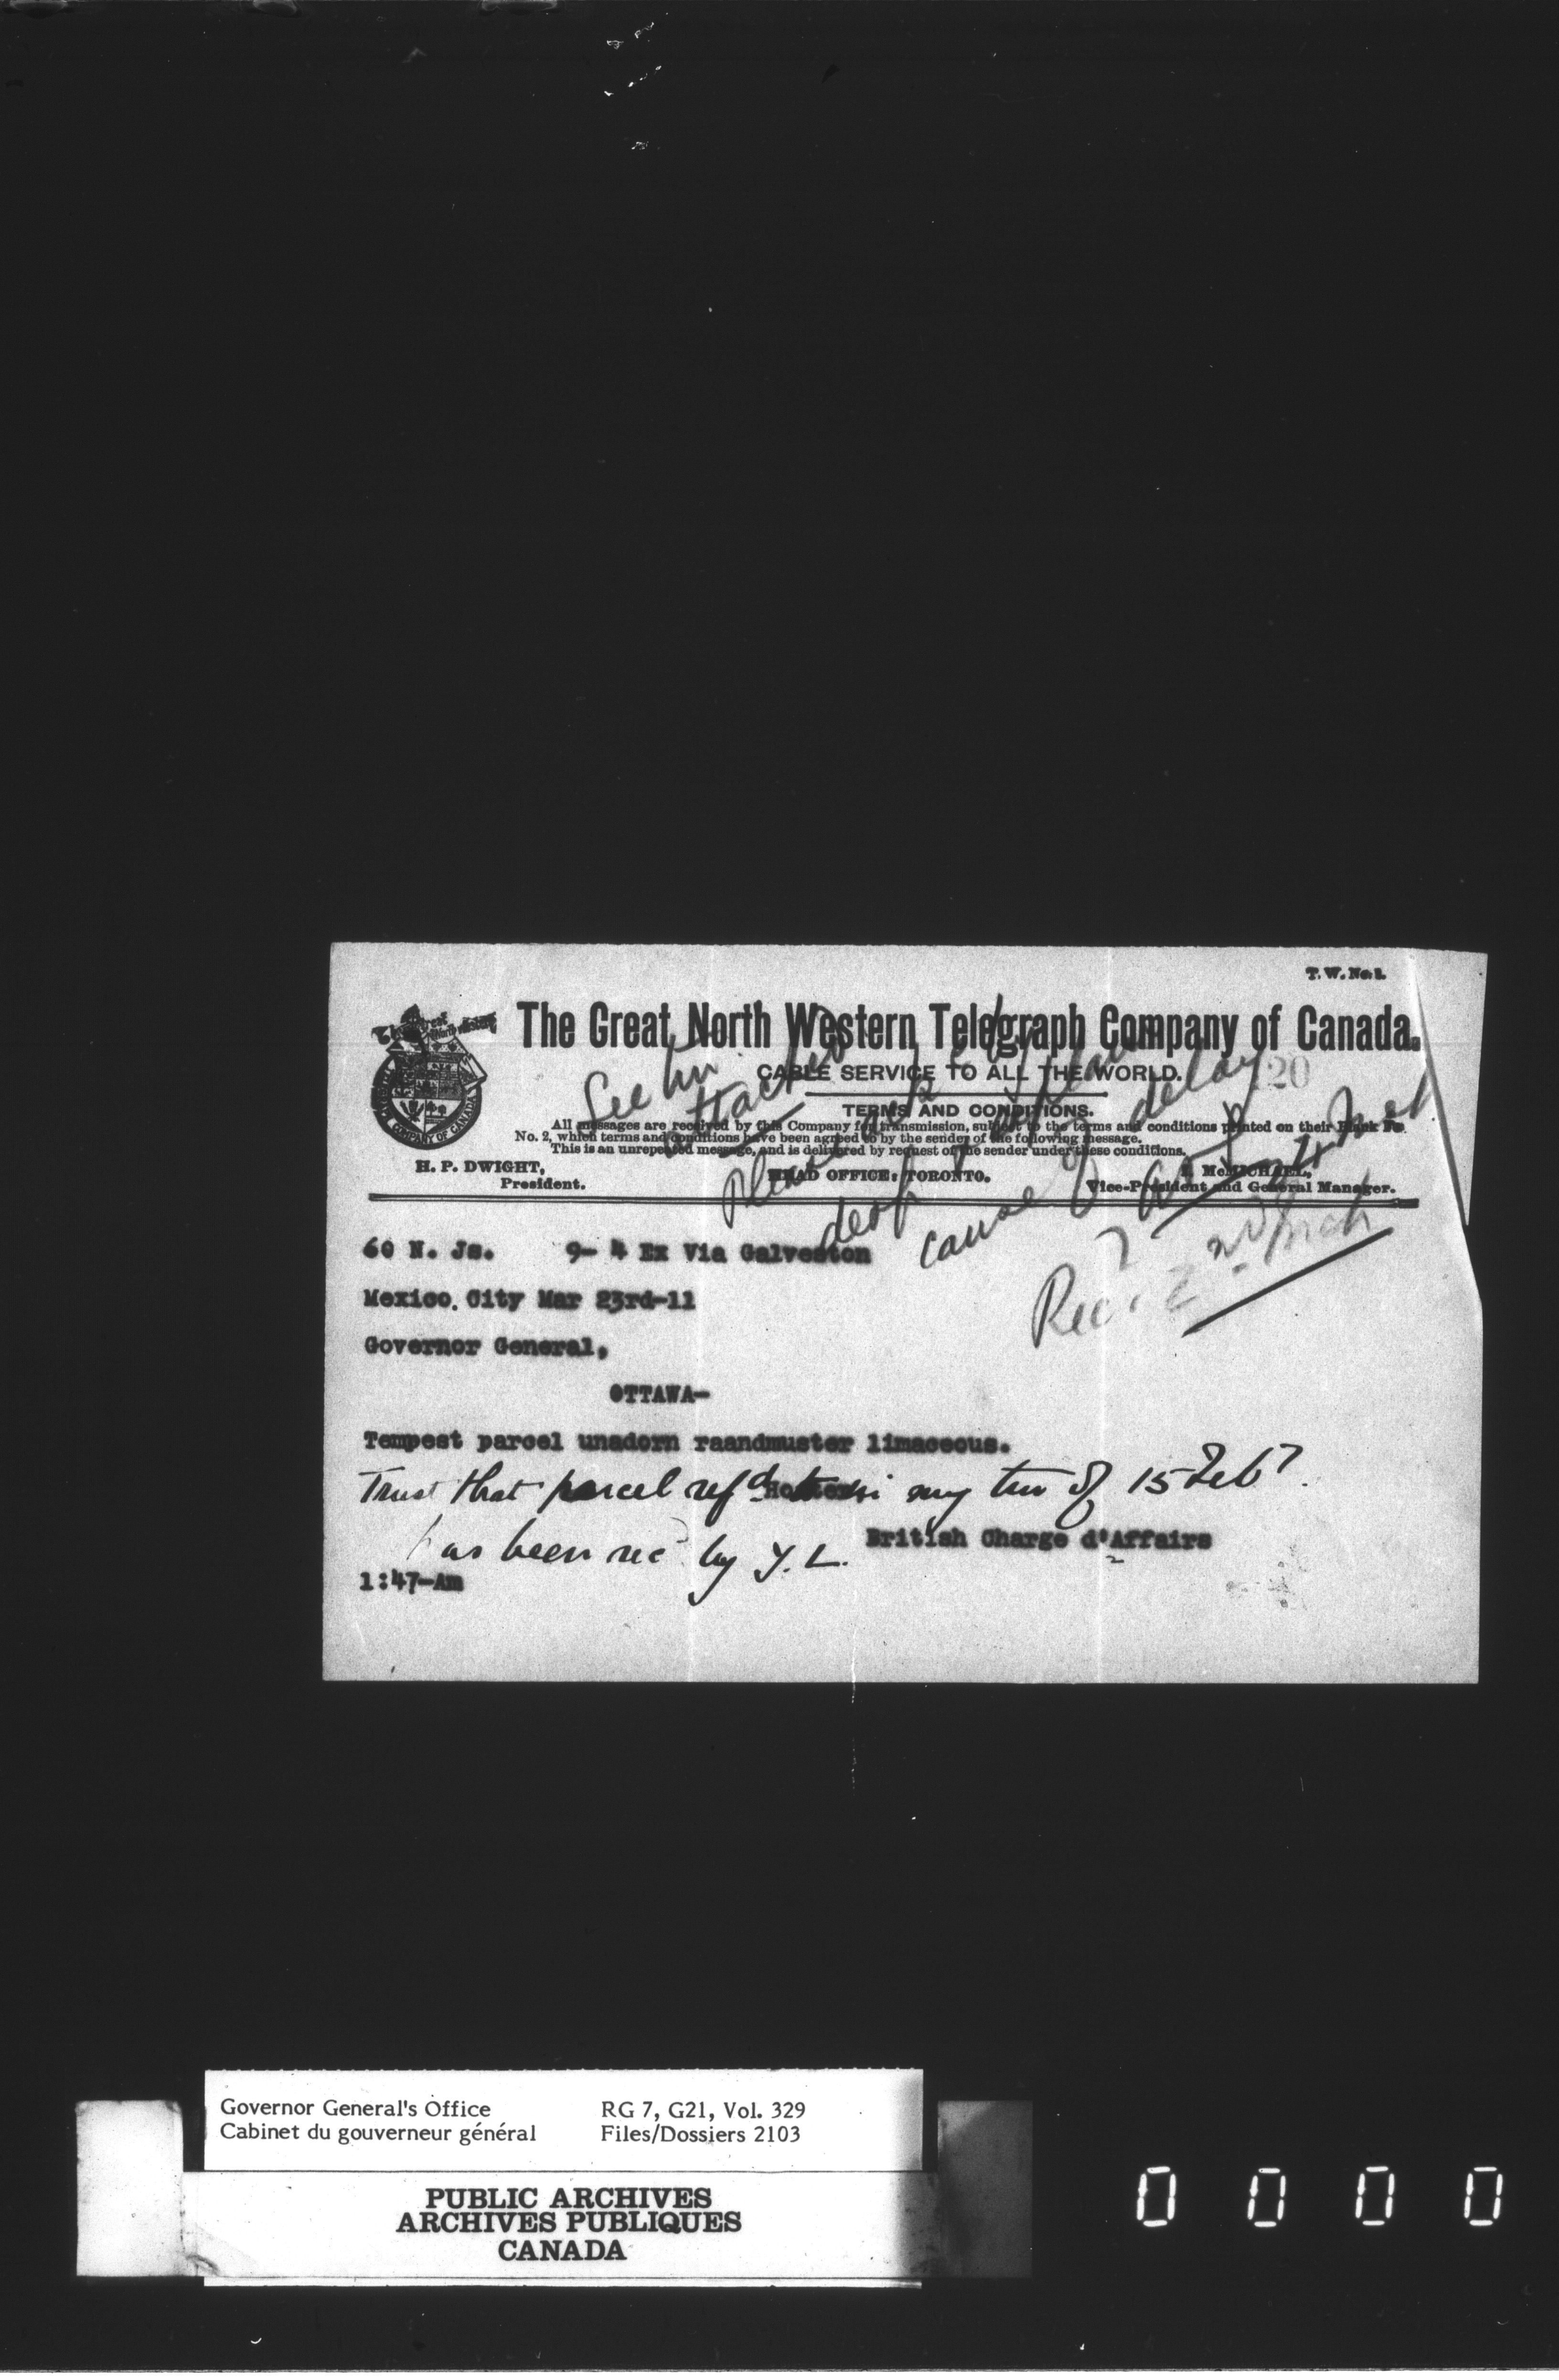 T. W. No. 1.
The Great North Western Telegraph Company of Canada.
CABLE SERVICE TO ALL THE WORLD.
20
TERMS AND CONDITIONS.
All messages are received by this Company for transmission, subject to the terms and conditions printed on their Blank
No. 2, which terms and conditions have been agreed to by the sender of the following message.
This is an unrepeated message, and is delivered by request of the sender under these conditions.
H. P. DWIGHT,
President.
HEAD OFFICE: TORONTO.
McMICHAEL,
Vice-President and General Manager.
attached
Please ask
delay
cause of
60 N. Js. 9- 4 Ex Via Galveston
Mexico. City Mar 23rd-11
Governor General,
OTTAWA-
Tempest parcel unadorn raandmuster limaceous.
Trust that parcel refd to in my tm of 15 Feby.
has been rec by Y. L.
British Charge d'Affairs
1:47-Am
Governor General's Office RG 7, G21, Vol. 329
Cabinet du gouverneur général Files/Dossiers 2103
PUBLIC ARCHIVES
ARCHIVES PUBLIQUES
CANADA
0 0 0 0